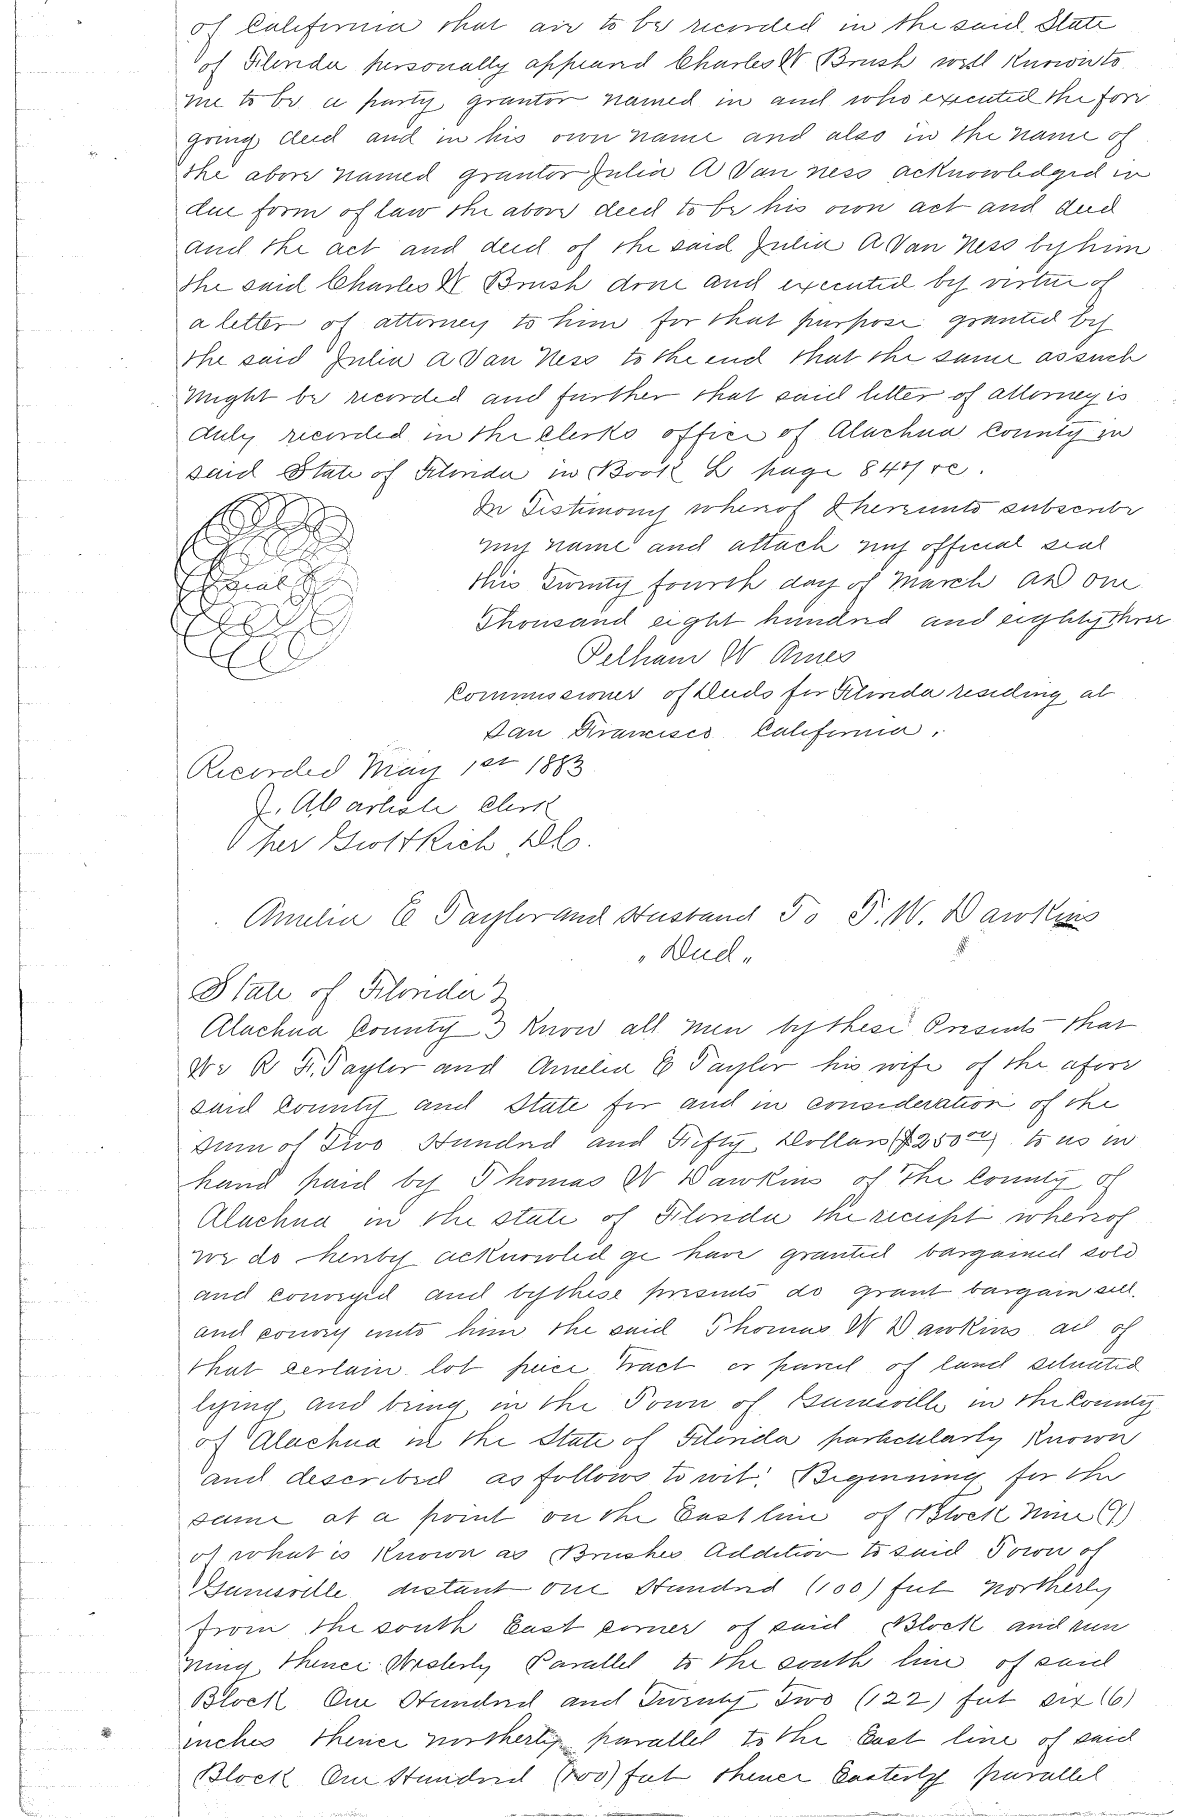 of California that are to be recorded in the said State
of Florida personally appeared Charles W Brush well Known to
me to be a party grantor named in and who executed the fore
going deed and in his own name and also in the name of
the above named grantor Julia A Van Ness acknowledged in
due form of law the above deed to be his own act and deed
and the act and deed of the said Julia A Van Ness by him
the said Charles W Brush done and executed by virtue of
a letter of attorney to him for that purpose granted by
the said Julia A Van Ness to the end that the same as such
might be recorded and further that said letter of attorney is
duly recorded in the clerks office of Alachua County in
said State of Florida in Book L page 844 &c.
In Testimony whereof I hereunto subscribe
my name and attach my official seal
this Twenty fourth day of March AD one
Thousand eight hundred and eighty three
Seal
Pelham W Ames
Commissioner of Deeds for Florida residing at
San Francisco California.
Recorded May 1st 1883
J. A Carlisle Clerk
per DC.
Amelia E Taylor and Husband To T. W. Dawkins
"Deed"
State of Florida }
Alachua County } Know all men by these Presents that
We R F. Taylor and Amelia E Taylor his wife of the afore
said County and State for and in consideration of the
sum of Two Hundred and Fifty Dollars ($250 00) to us in
hand paid by Thomas W Dawkins of The County of
Alachua in the state of Florida the receipt whereof
we do hereby acknowled ge have granted bargained sold
and conveyed and by these presents do grant bargain sell
and convey unto him the said Thomas W Dawkins all of
that certain lot peice Tract or parcel of land situated
lying and being in the Town of Gainesville in the County
of Alachua in the State of Florida particularly Known
and described as follows to wit: Beginning for the
same at a point on the East line of Block Nine (9)
of what is Known as Brushes Addition to said Town of
Gainesville distant one Hundred (100) feet northerly
from the south East corner of said Block and run
ning thence Westerly Parallel to the south line of said
Block One Hundred and Twenty Two (122) feet six (6)
inches thence northerly parallel to the East line of said
Block One Hundred (100) feet thence Easterly parallel